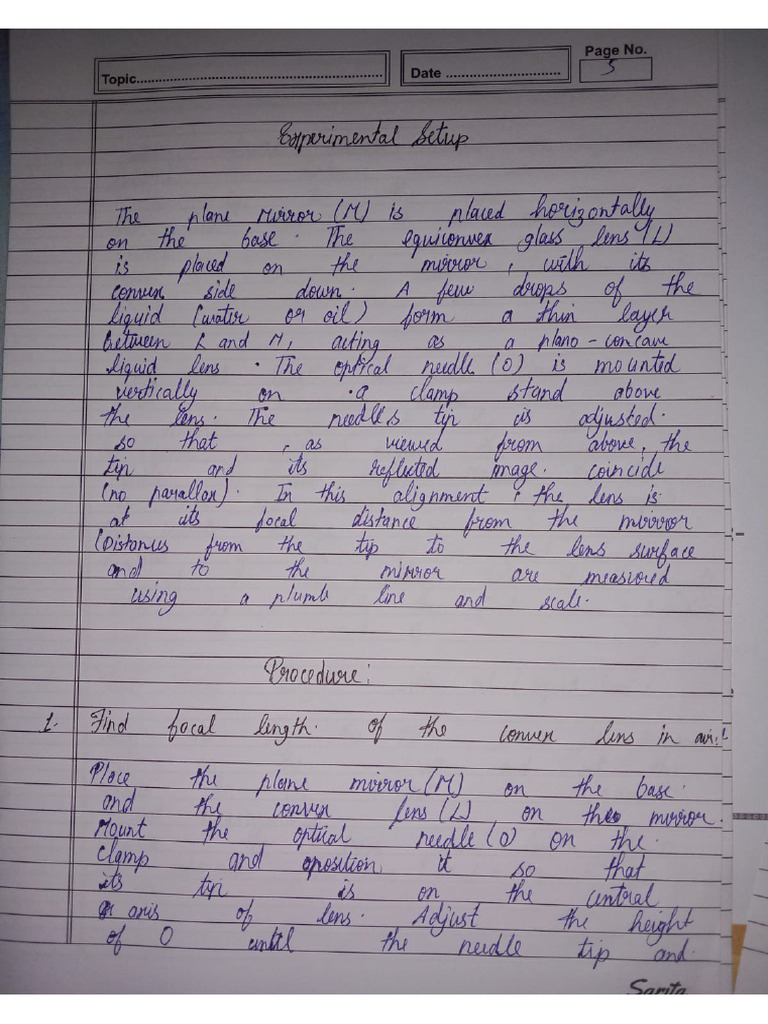 Page No.
Topic.......................................................... Date ............................. 5
Experimental Setup
The plane mirror (M) is placed horizontally
on the base. The equiconvex glass lens (L)
is placed on the mirror, with its
convex side down. A few drops of the
liquid (water or oil) form a thin layer
between L and M, acting as a plano-concave
liquid lens. The optical needle (O) is mounted
vertically on a clamp stand above
the lens. The needle's tip is adjusted.
so that, as viewed from above, the
tip and its reflected image. coincide
(no parallax). In this alignment, the lens is
at its focal distance from the mirror
(Distances from the tip to the lens surface
and to the mirror are measured
using a plumb line and scale.
Procedure:
1. Find focal length. of the convex lens in air:
Place the plane mirror (M) on the base.
and the convex lens (L) on the mirror.
Mount the optical needle (O) on the.
clamp and position it so that
its tip is on the central
axis of lens. Adjust the height
of O until the needle tip and.
Sarita